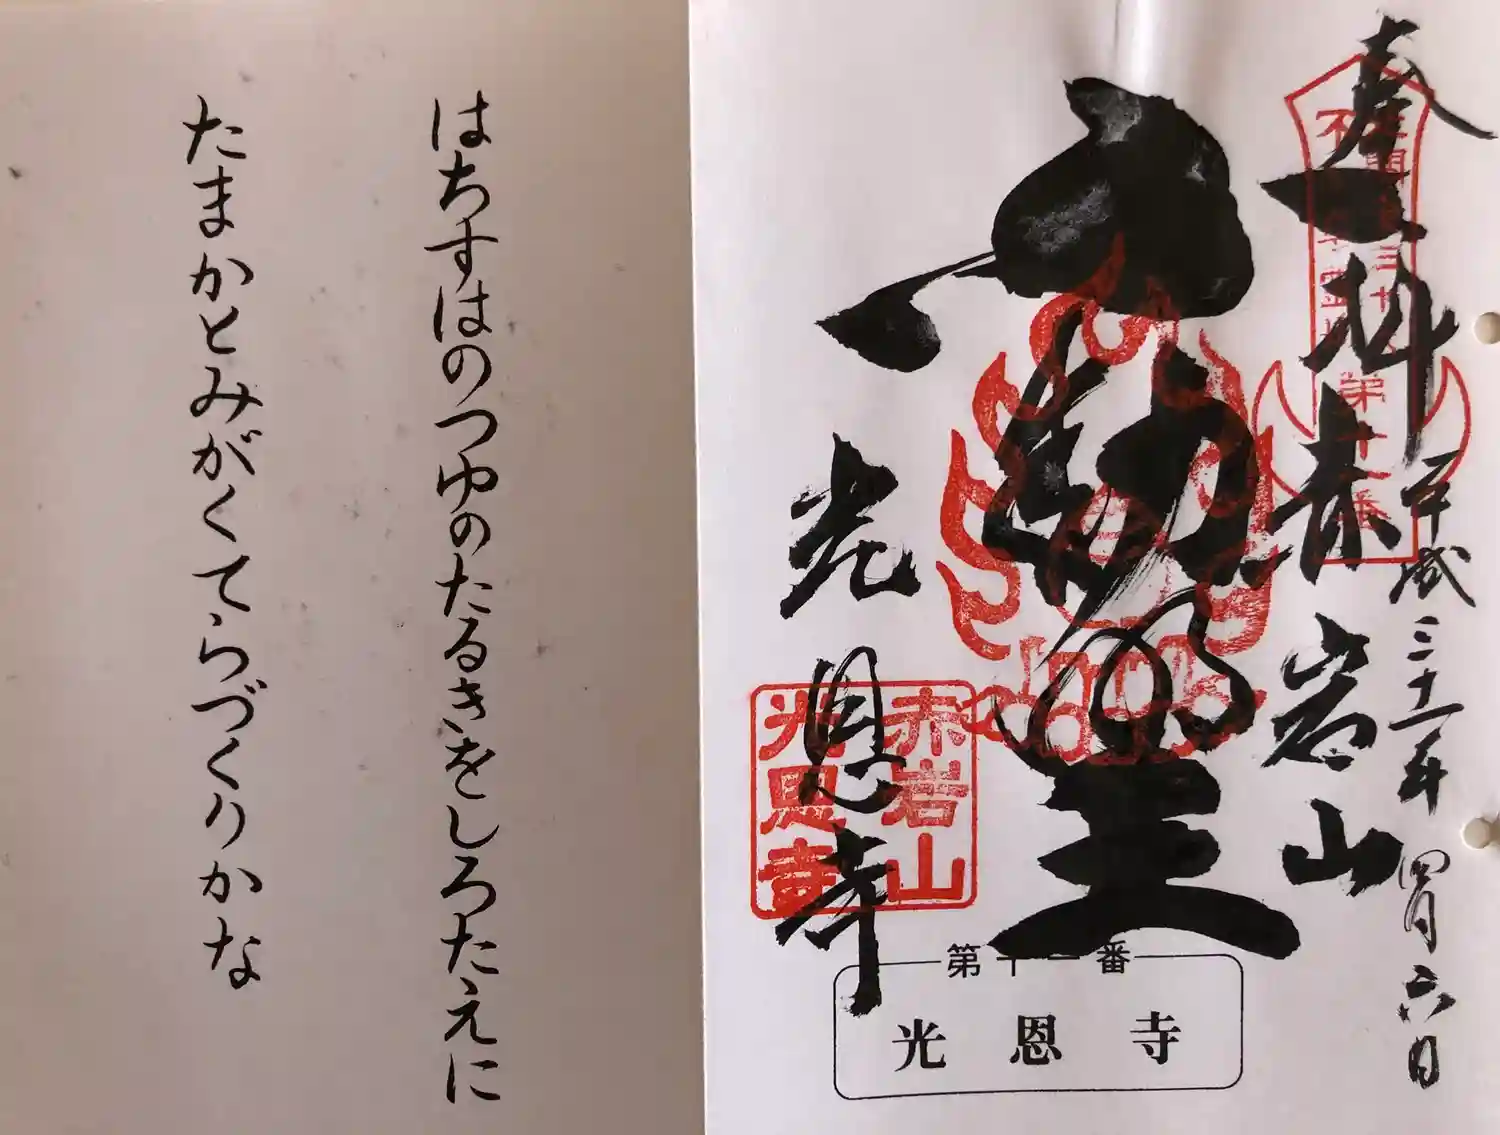 奉拝
赤岩山
平成三十一年四月六日
不動明王
光恩寺
赤岩山
光恩寺
第十一番
第十一番
光恩寺
はちすはのつゆのたるきをしろたえに
たまかとみがくてらづくりかな